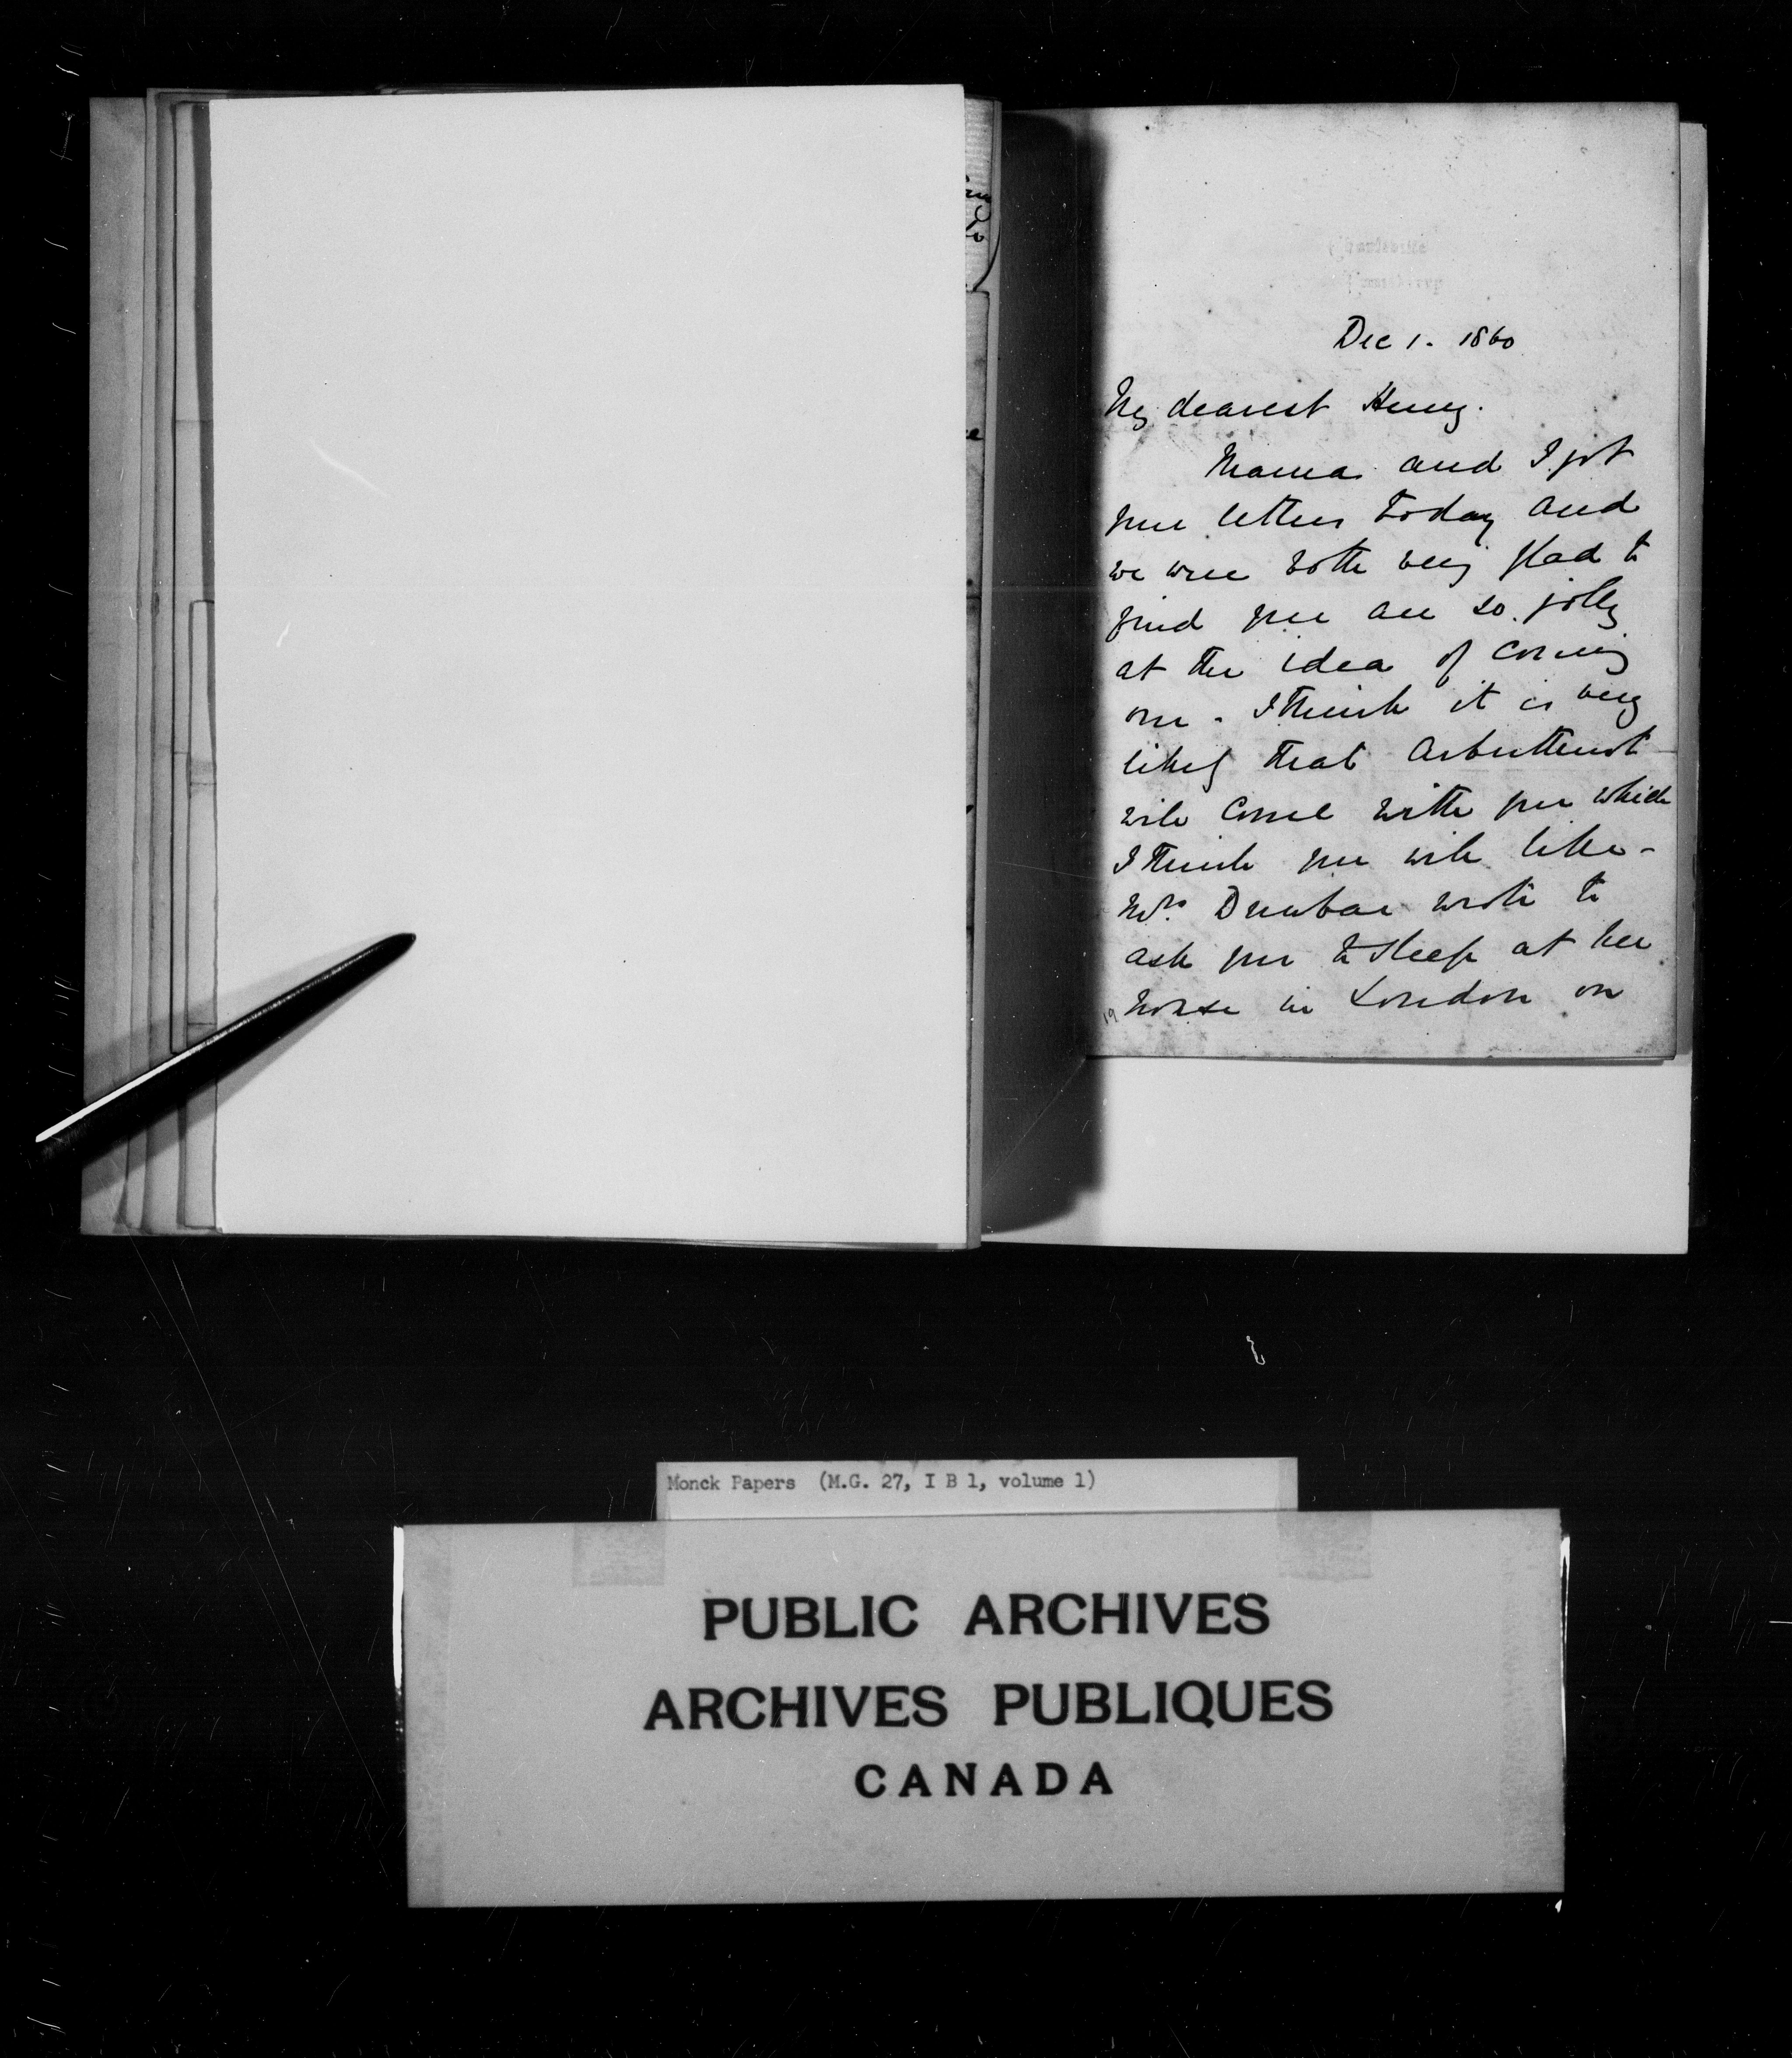 Dec 1. 1860
My dearest Henry.
Mama and I got
your letters today and
we were both very glad to
find you are so jolly
at the idea of coming
over. I think it is very
likely that Arbuthnot
will come with you which
I think you will like -
Mrs. Dunbar wrote to
ask you to sleep at her
19 house in London on
Monck Papers (M.G. 27, I B 1, volume 1)
PUBLIC ARCHIVES
ARCHIVES PUBLIQUES
CANADA